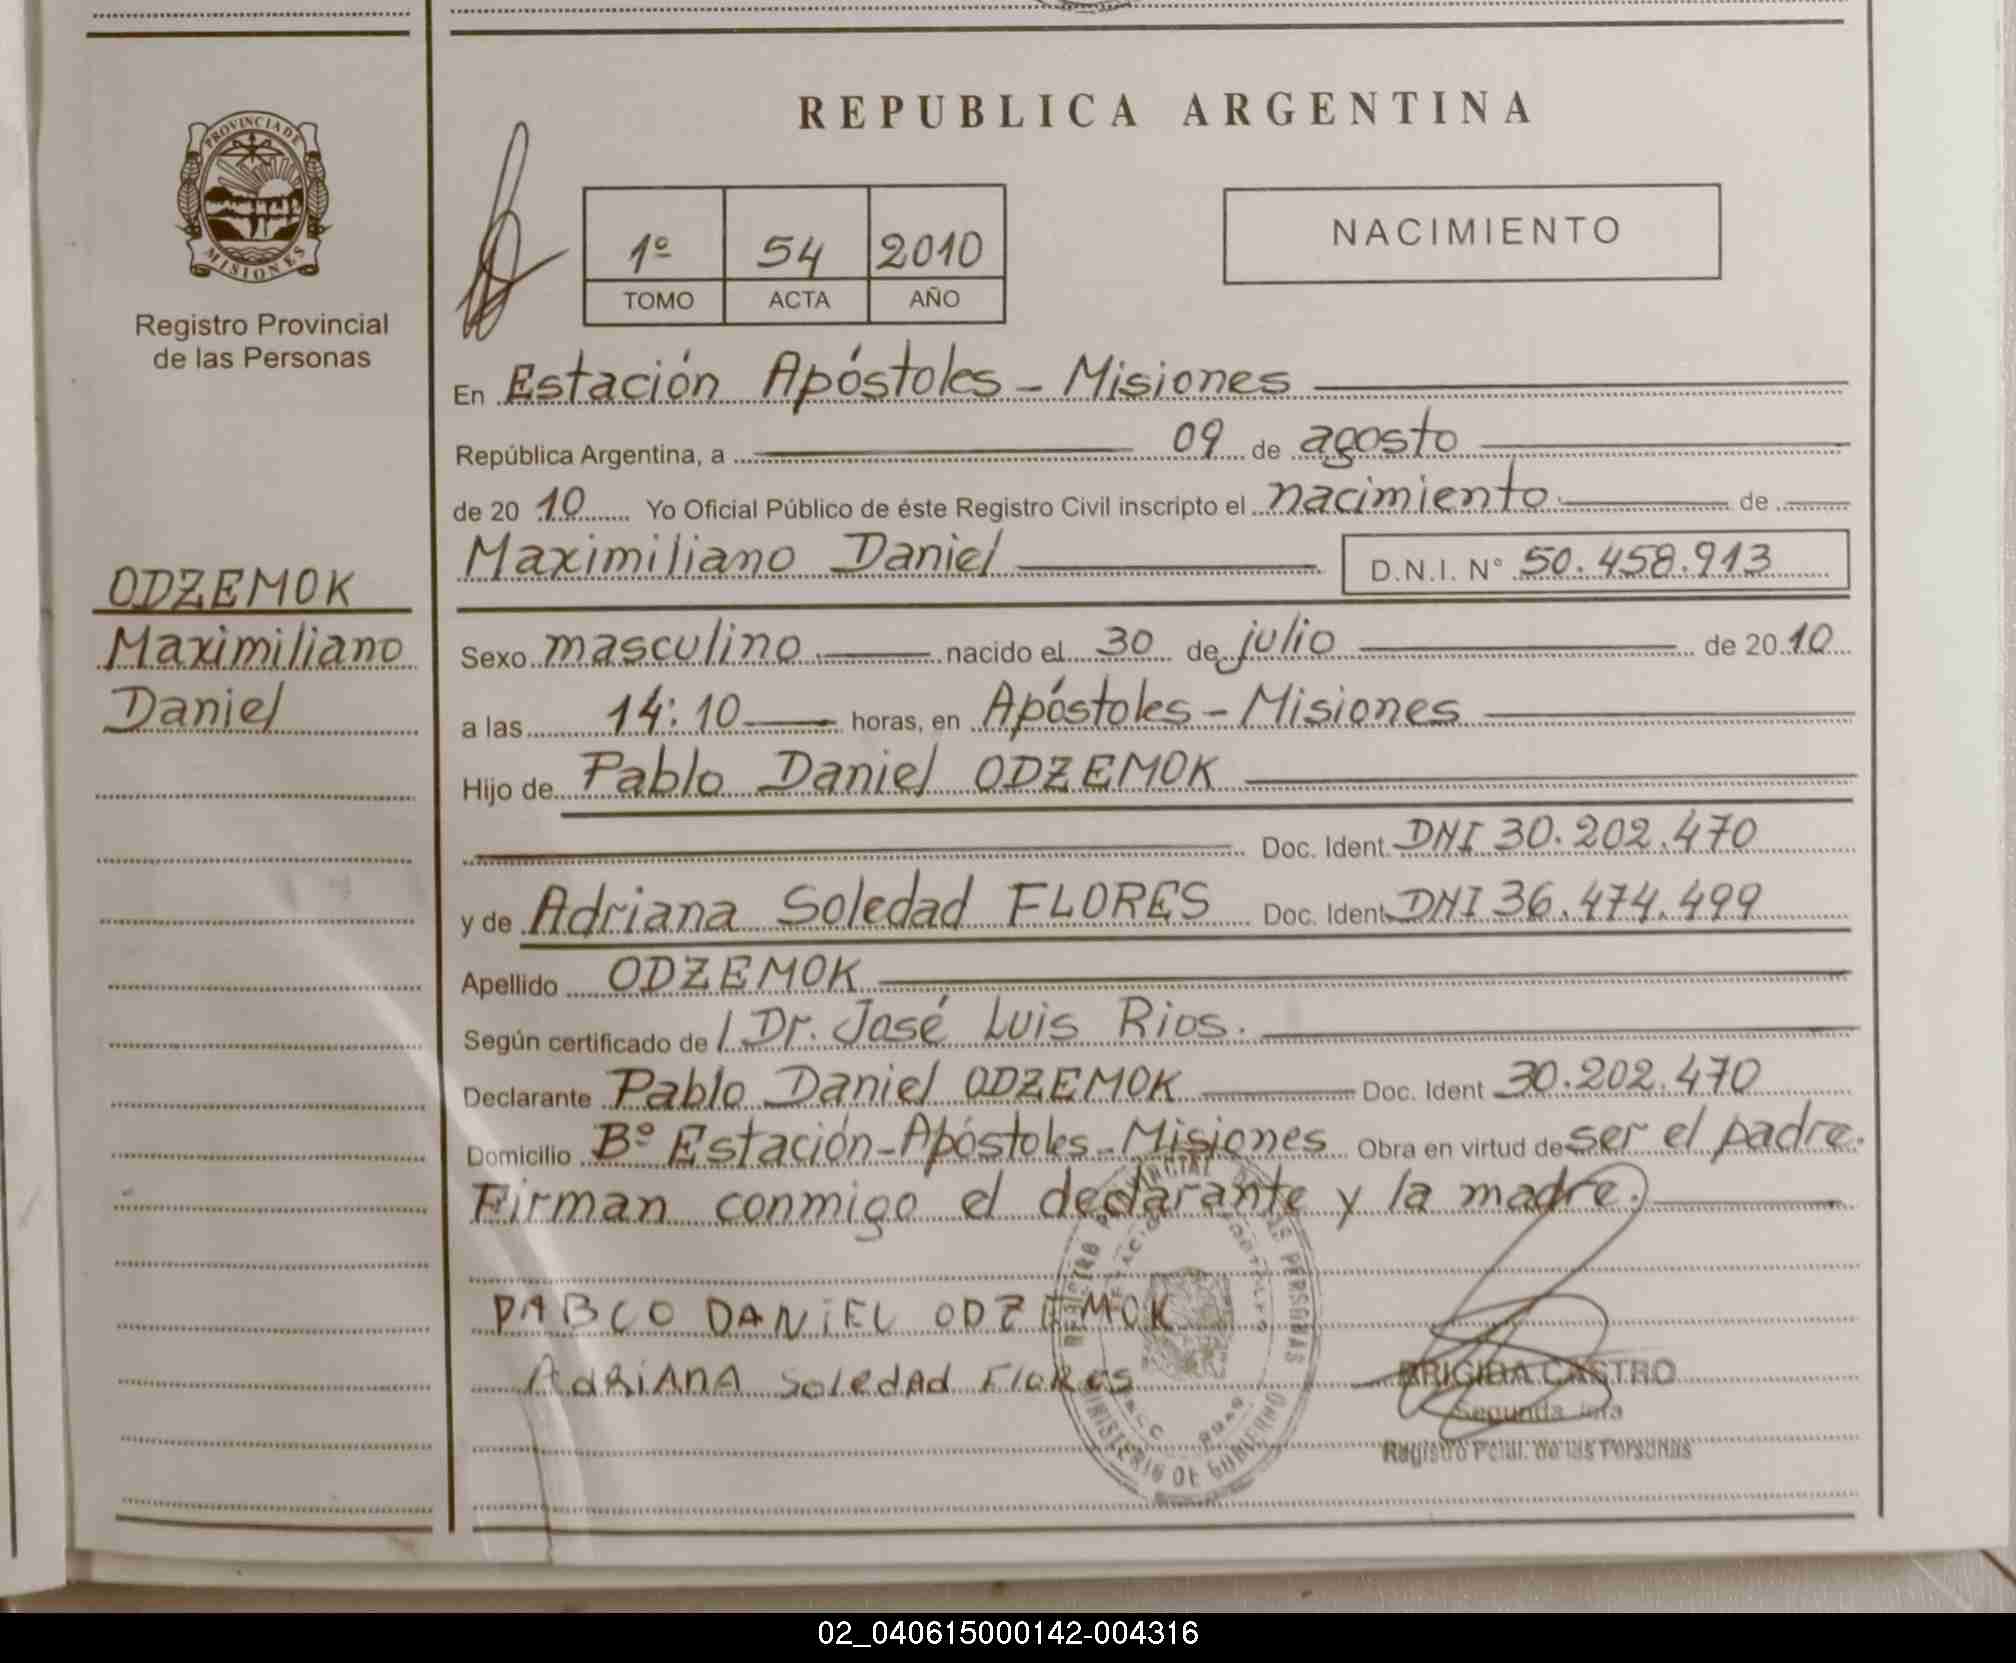 PROVINCIA DE
MISIONES
Registro Provincial
de las Personas
ODZEMOK
Maximiliano
Daniel
REPUBLICA ARGENTINA
1º 54 2010
TOMO ACTA AÑO
NACIMIENTO
En Estación Apóstoles - Misiones
República Argentina, a 09 de agosto
de 2010 Yo Oficial Público de éste Registro Civil inscripto el nacimiento de
Maximiliano Daniel D.N.I. N° 50.458.913
Sexo masculino nacido el 30 de julio de 2010
a las 14:10 horas, en Apóstoles - Misiones
Hijo de Pablo Daniel ODZEMOK
Doc. Ident. DNI 30.202.470
y de Adriana Soledad FLORES Doc. Ident. DNI 36.474.499
Apellido ODZEMOK
Según certificado de Dr. José Luis Rios.
Declarante Pablo Daniel ODZEMOK Doc. Ident 30.202.470
Domicilio Bº Estación - Apóstoles - Misiones Obra en virtud de ser el padre.
Firman conmigo el declarante y la madre.
PABLO DANIEL ODZEMOK
ADRIANA Soledad Flores
MINISTERIO DE GOBIERNO
BRIGIDA CASTRO
Segunda Jefa
Registro Pcial. de las Personas
02_040615000142-004316